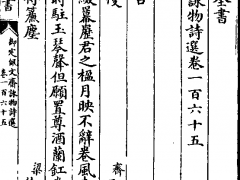 全書
詠物詩選卷一百六十五
齊
綴幕君之楹月映不辭卷風
時駐玉琴聲但願置尊酒蘭釭
簾塵
梁
書
御定佩文齋詠物詩選
卷一百六十五